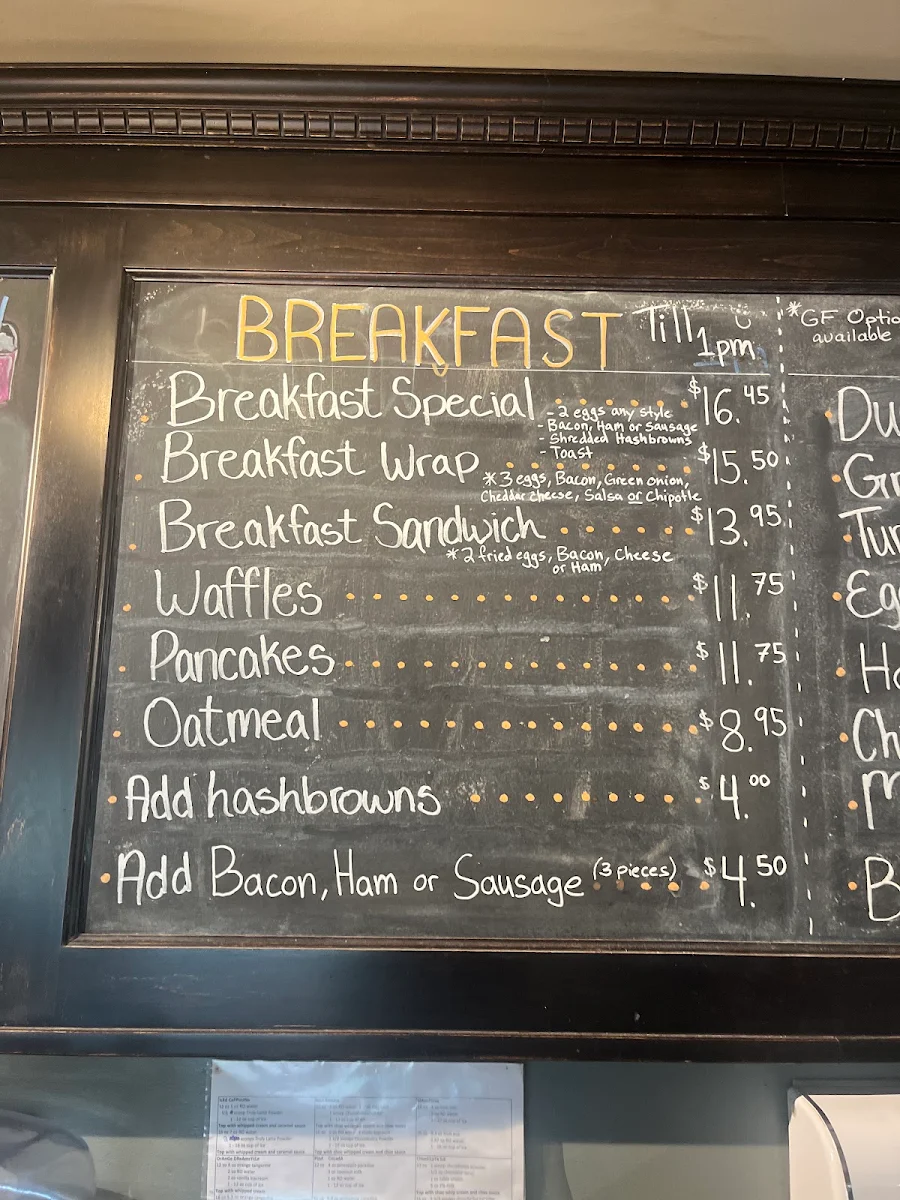 BREAKFAST Till 1pm
Breakfast Special $16.45
- 2 eggs any style
- Bacon, Ham or Sausage
- Shredded Hashbrowns
- Toast
Breakfast Wrap $15.50
*3 eggs, Bacon, Green onion,
Cheddar cheese, Salsa or Chipotle
Breakfast Sandwich $13.95
*2 fried eggs, Bacon, Cheese
or Ham
Waffles $11.75
Pancakes $11.75
Oatmeal $8.95
Add hashbrowns $4.00
Add Bacon, Ham or Sausage (3 pieces) $4.50
*GF Optio
available
Du
Gr
Tur
Eg
Ha
Ch
M
B